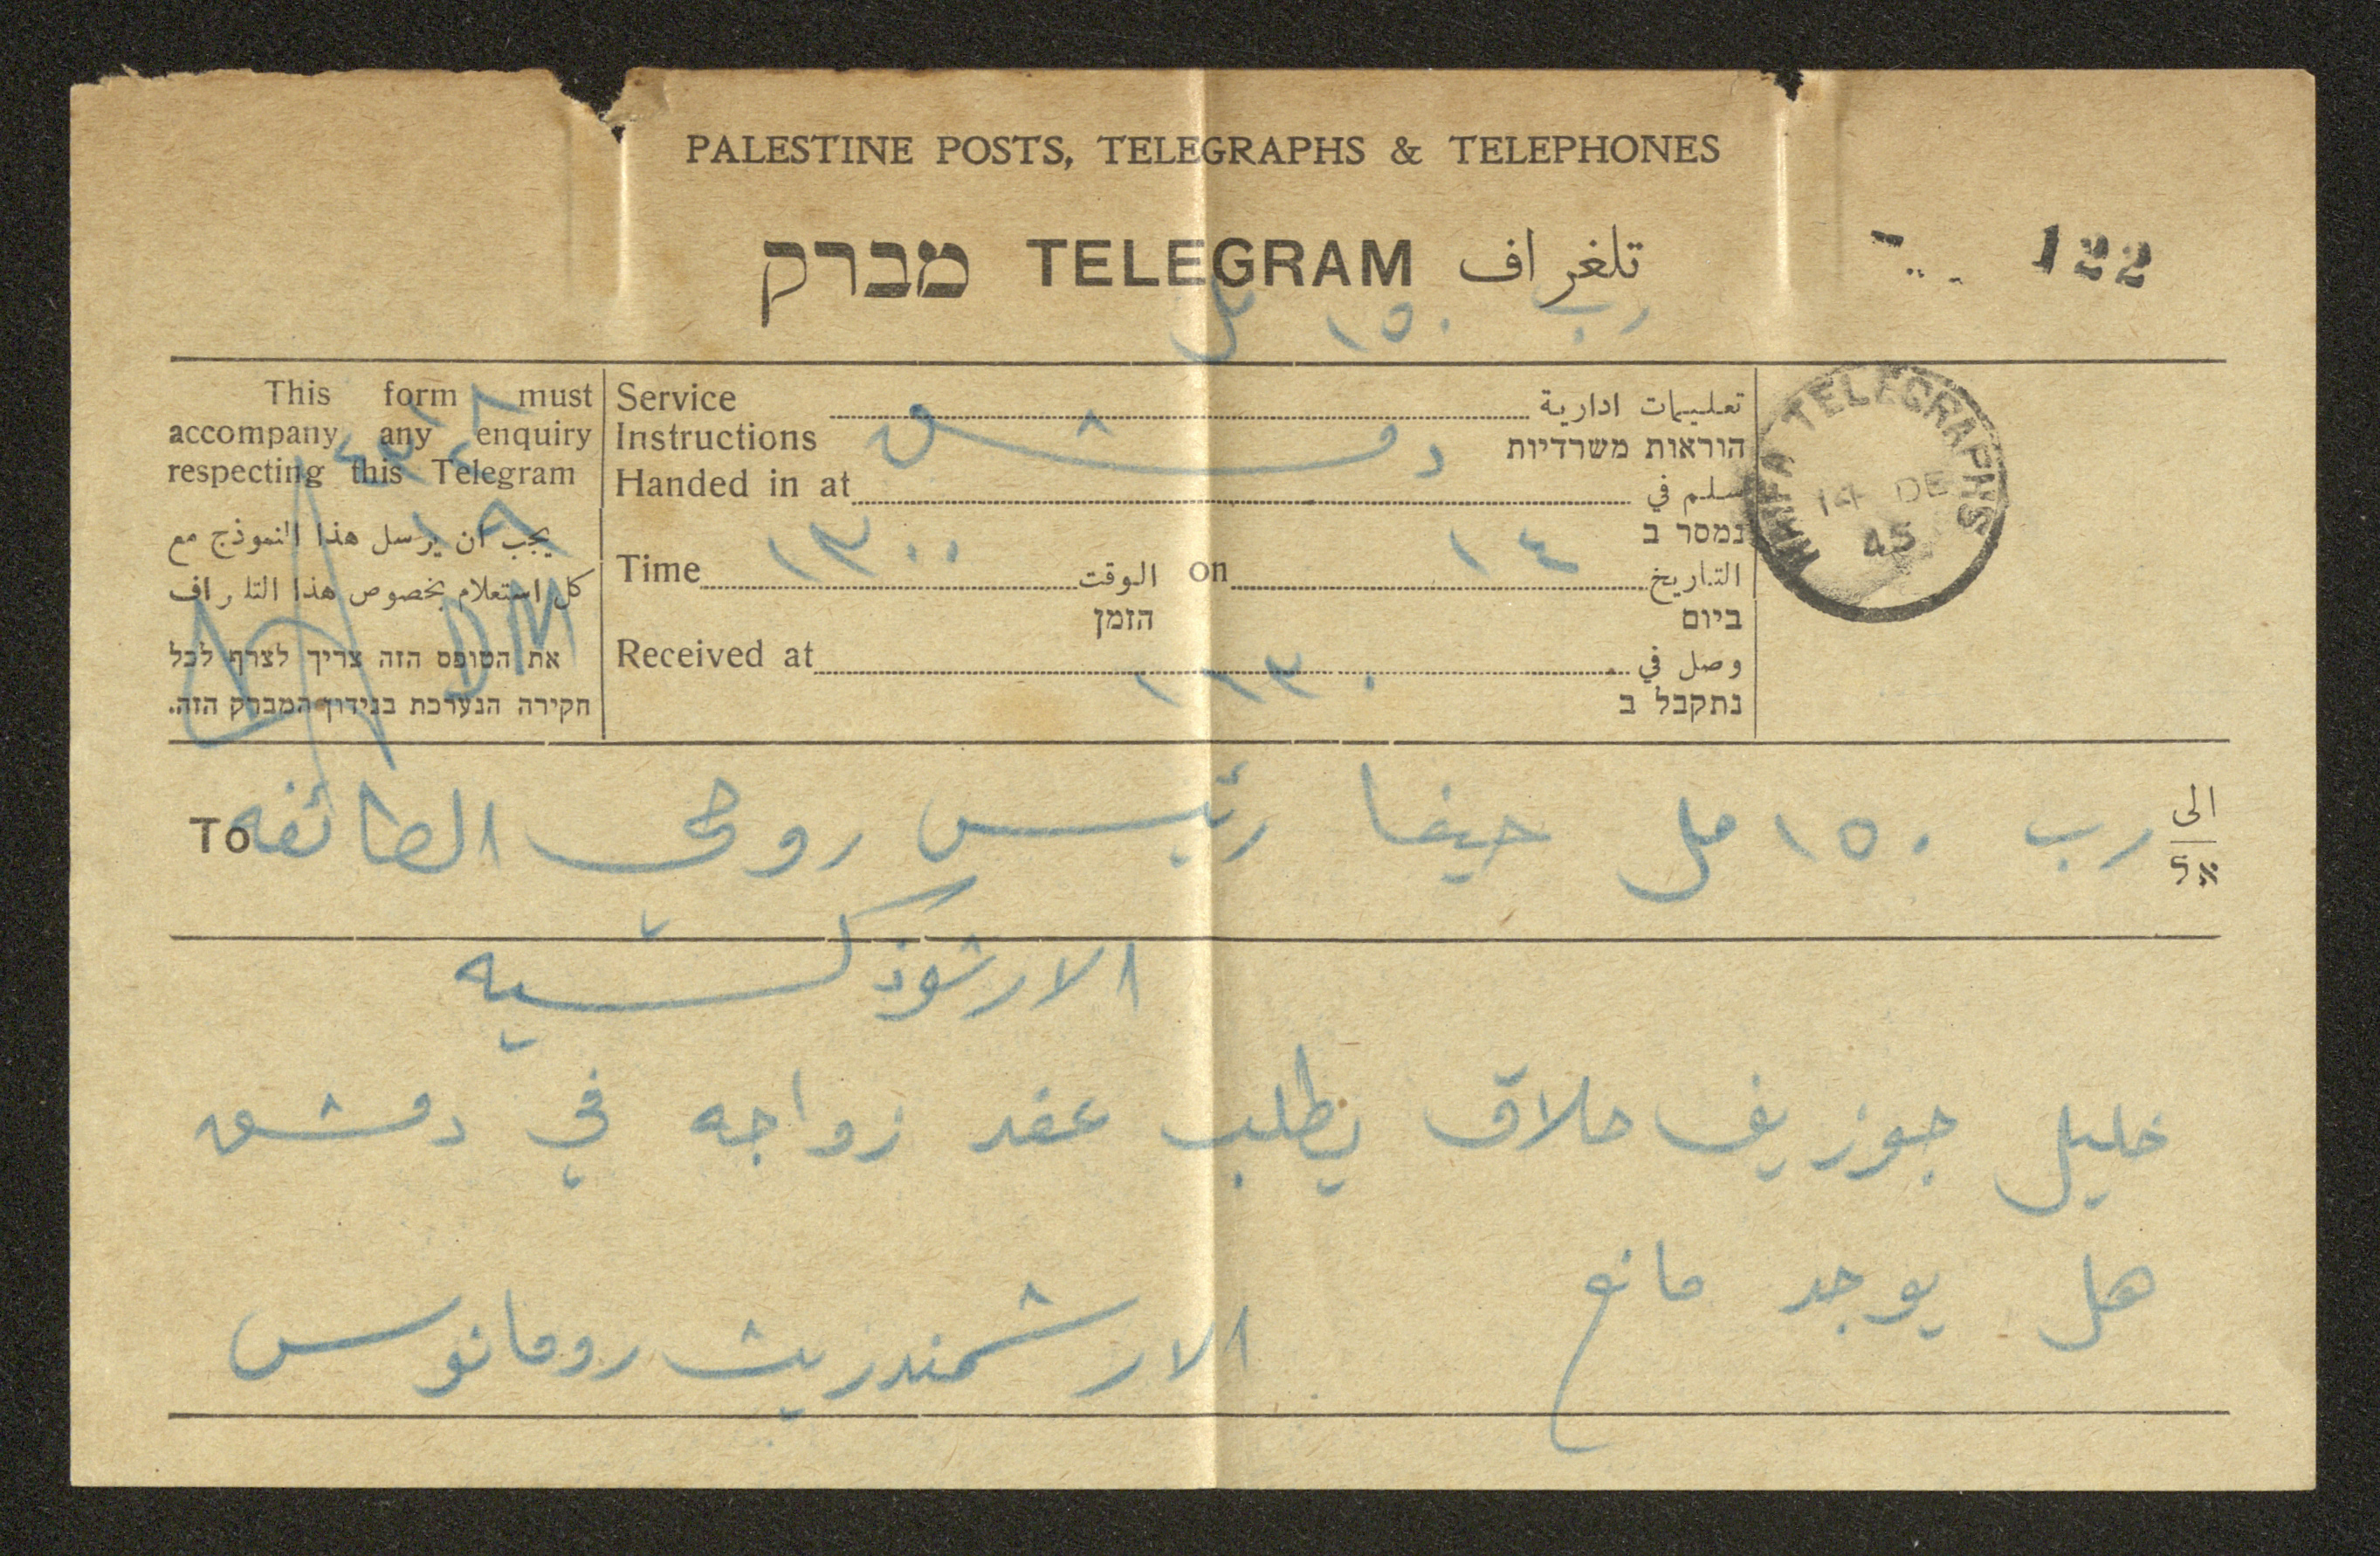 PALESTINE POSTS, TELEGRAPHS & TELEPHONES
מברק TELEGRAM تلغراف
122
رب ١٥٠ مل
This form must
accompany any enquiry
respecting this Telegram
يجب ان يرسل هذا النموذج مع
كل استعلام بخصوص هذا التلغراف
את הטופס הזה צריך לצרף לכל
חקירה הנערכת בנידון המברק הזה.
DM
Service تعليمات ادارية
Instructions הוראות משרדיות
دمشق
Handed in at سلم في
נמסר ב
Time ١٣٠٠ الوقت on ١٤ التاريخ
הזמן ביום
Received at وصل في
נתקבל ב
HAIFA TELEGRAPHS
14 DE
45
To الى
אל
رب ١٥٠ مل حيفا رئيس روحي الطائفه
الارثوذكسيه
خليل جوزيف حلاق يطلب عقد زواجه في دمشق
هل يوجد مانع
الارشمندريت رومانوس